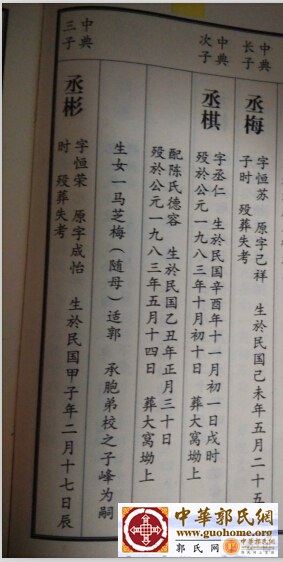 中典
长子
丞梅
字恒苏 原字己祥 生於民国己未年五月二十五
子时 殁葬失考
中典
次子
丞棋
字丞仁 生於民国辛酉年十一月初一日戌时
殁於公元一九八三年十月初十日 葬大窝坳上
配陈氏德容 生於民国乙丑年正月三十日
殁於公元一九八三年五月十四日 葬大窝坳上
生女一马芝梅（随母）适郭 承胞弟校之子峰为嗣
中典
三子
丞彬
字恒荣 原字成怡 生於民国甲子年二月十七日辰
时 殁葬失考
中華郭氏網
www.guohome.org
郭氏网